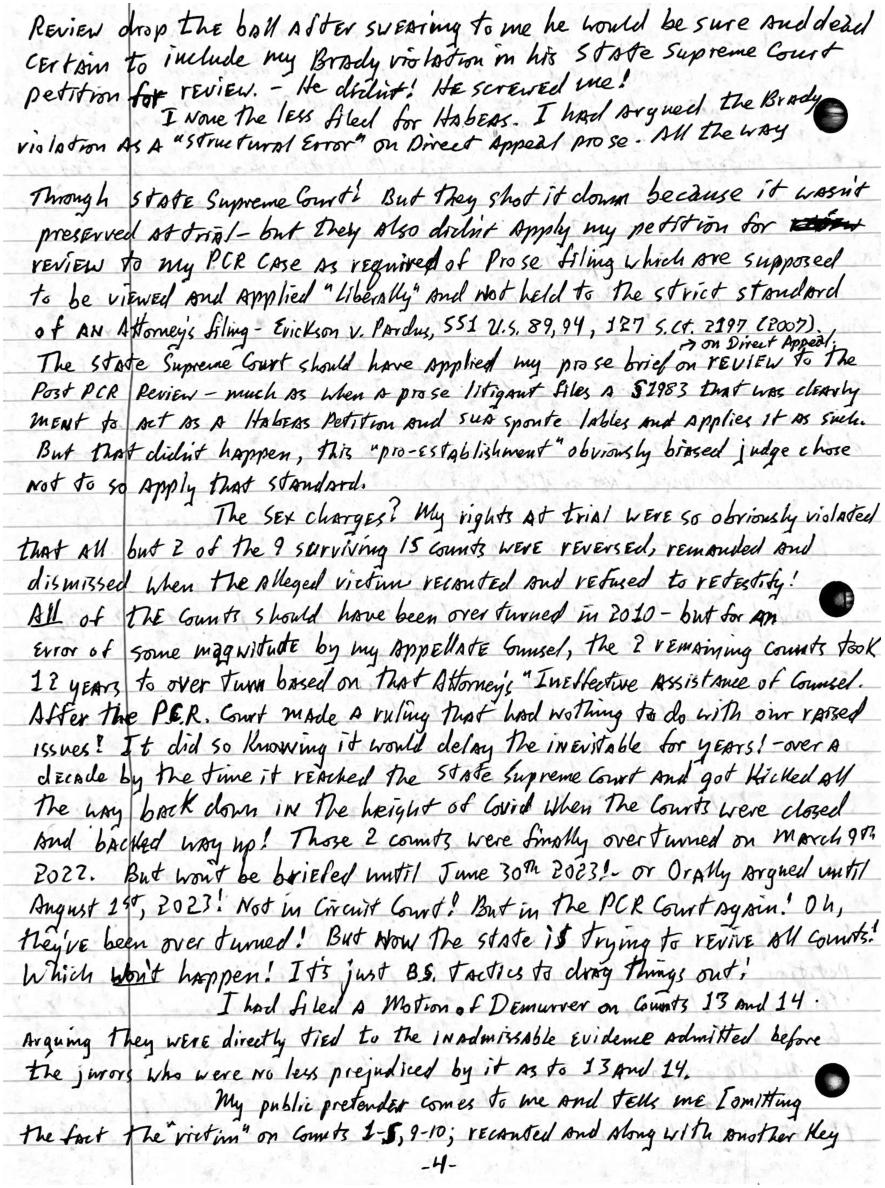 REVIEW drop the ball AftER SWEARing to me he would be sure and dead
CERtAin to include my Brady violation in his State Supreme Court
petition for REVIEW. - He didn't! HE SCREWED me!
I None the less filed for HabEAS. I had Argued the Brady
violation AS A "Structural Error" on Direct Appeal prose. All the way
Through State Supreme Court! But they shot it down because it wasn't
preserved at trial - but they Also didn't Apply my petition for
REVIEW to my PCR CASE as required of Prose filing which are supposed
to be viewed and applied "Liberally" and Not held to the strict standard
of AN Attorney's filing - Erickson v. Pardus, 551 U.S. 89, 94, 127 S.Ct. 2197 (2007).
→ on Direct Appeal.
The State Supreme Court should have Applied my prose brief on REVIEW to the
Post PCR Review - much as when a prose litigant files a §1983 that was clearly
MENT to Act as a Habeas Petition and SUA sponte lables and Applies it as such.
But that didn't happen, this "pro-establishment" obviously biased judge chose
Not to so Apply that standard.
The SEX charges? My rights at trial WERE so obviously violated
that All but 2 of the 9 surviving 15 counts WERE REVERSEd, remanded and
dismissed when the Alleged victim recanted and refused to retestify!
All of the Counts should have been over turned in 2010 - but for an
Error of some magnitude by my Appellate Counsel, the 2 remaining counts took
12 years to over turn based on that Attorney's "Ineffective Assistance of Counsel.
After the PCR. Court made a ruling that had nothing to do with our raised
issues! It did so Knowing it would delay the inevitable for years! - over a
decade by the time it reached the State Supreme Court and got Kicked All
the way back down in the height of Covid when the Courts were closed
and backed way up! Those 2 counts were finally over turned on March 9th
2022. But won't be briefed until June 30th 2023! - or Orally Argued until
August 1st, 2023! Not in Circuit Court! But in the PCR Court Again! Oh,
they've been over turned! But Now the state is trying to revive All counts!
Which won't happen! It's just B.S. tactics to drag things out!
I had filed a Motion of Demurrer on Counts 13 and 14.
Arguing they were directly tied to the inadmissable evidence admitted before
the jurors who were no less prejudiced by it as to 13 and 14.
My public pretender comes to me and tells me [omitting
the fact the "victim" on Counts 1-5, 9-10; recanted and along with another Key
-4-